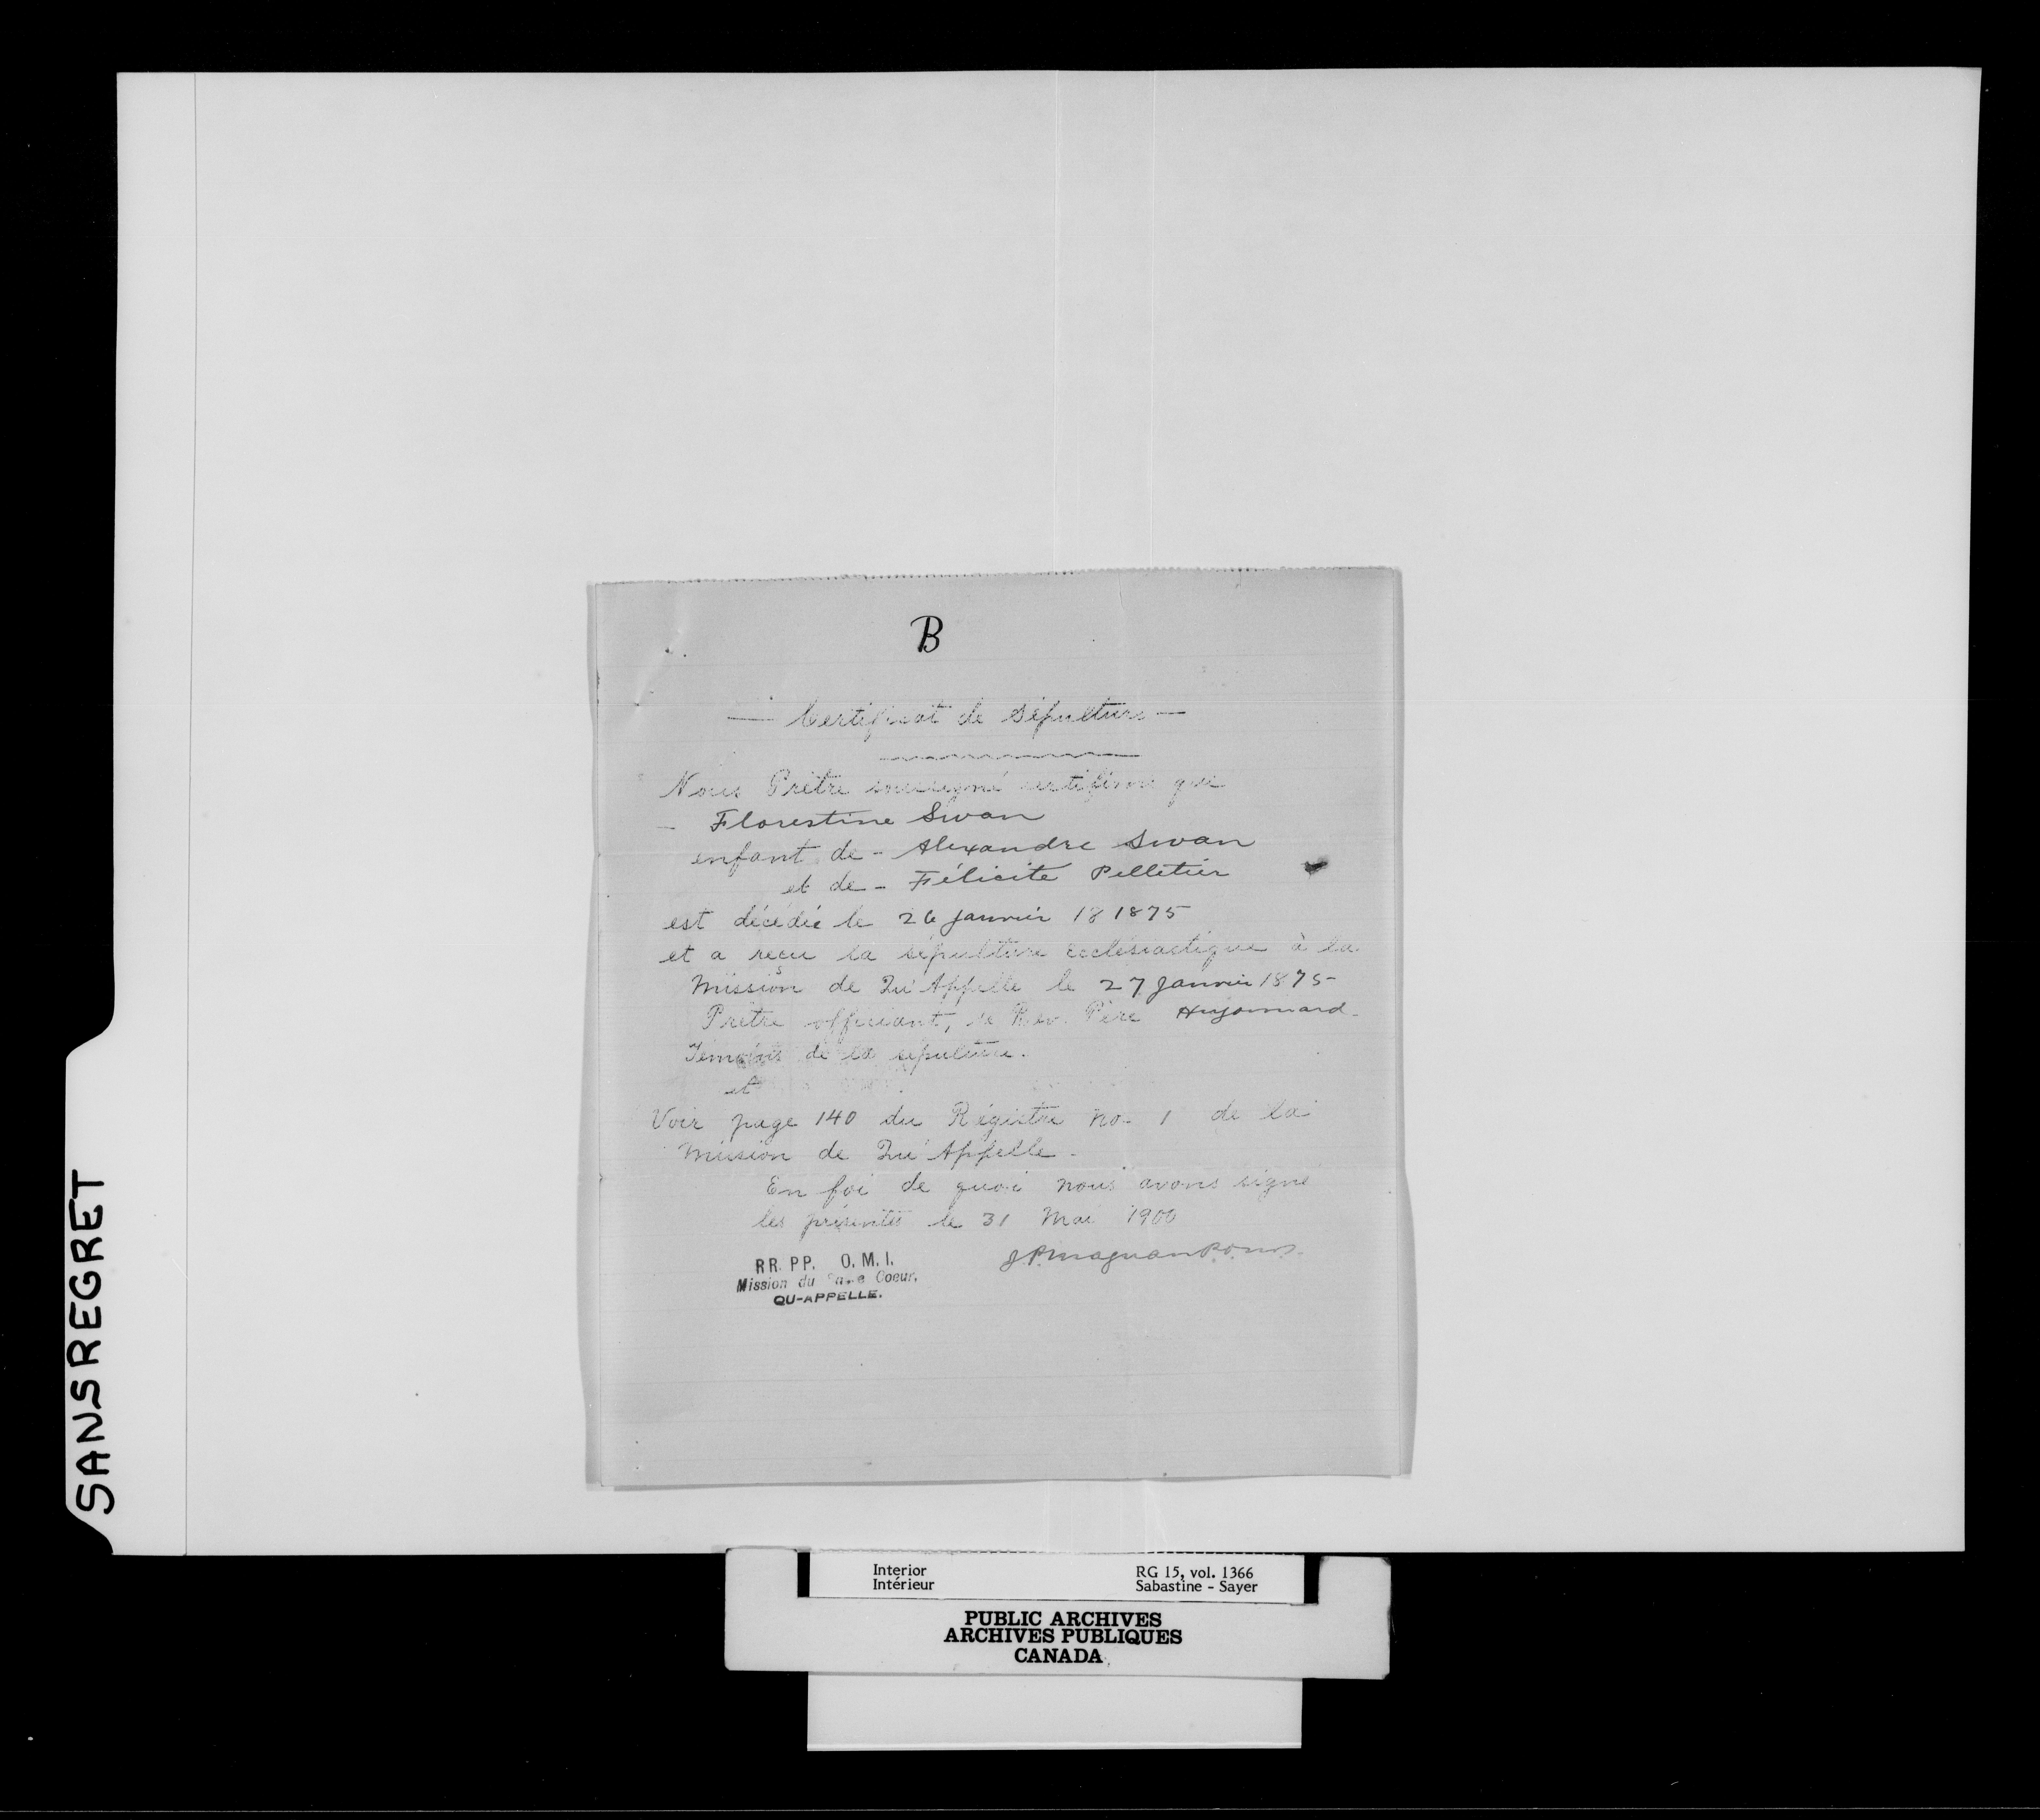 B
— Certificat de Sépulture —
Nous Prêtre soussigné certifions que
- Florestine Swan
enfant de - Alexandre Swan
et de - Félicité Pelletier
est décédée le 26 Janvier 18 1875
et a reçu la sépulture ecclésiastique à la
Mission de Qu'Appelle le 27 Janvier 1875-
Prêtre officiant, le Rev. Père Hugonnard.
Témoins de la sépulture.
et
Voir page 140 du Régistre no. 1 de la
Mission de Qu'Appelle.
En foi de quoi nous avons signé
les présentes le 31 Mai 1900
J P Magnan P. O.M.I.
RR. PP. O. M. I.
Mission du Coeur,
QU-APPELLE.
SANSREGRET
Interior RG 15, vol. 1366
Intérieur Sabastine - Sayer
PUBLIC ARCHIVES
ARCHIVES PUBLIQUES
CANADA